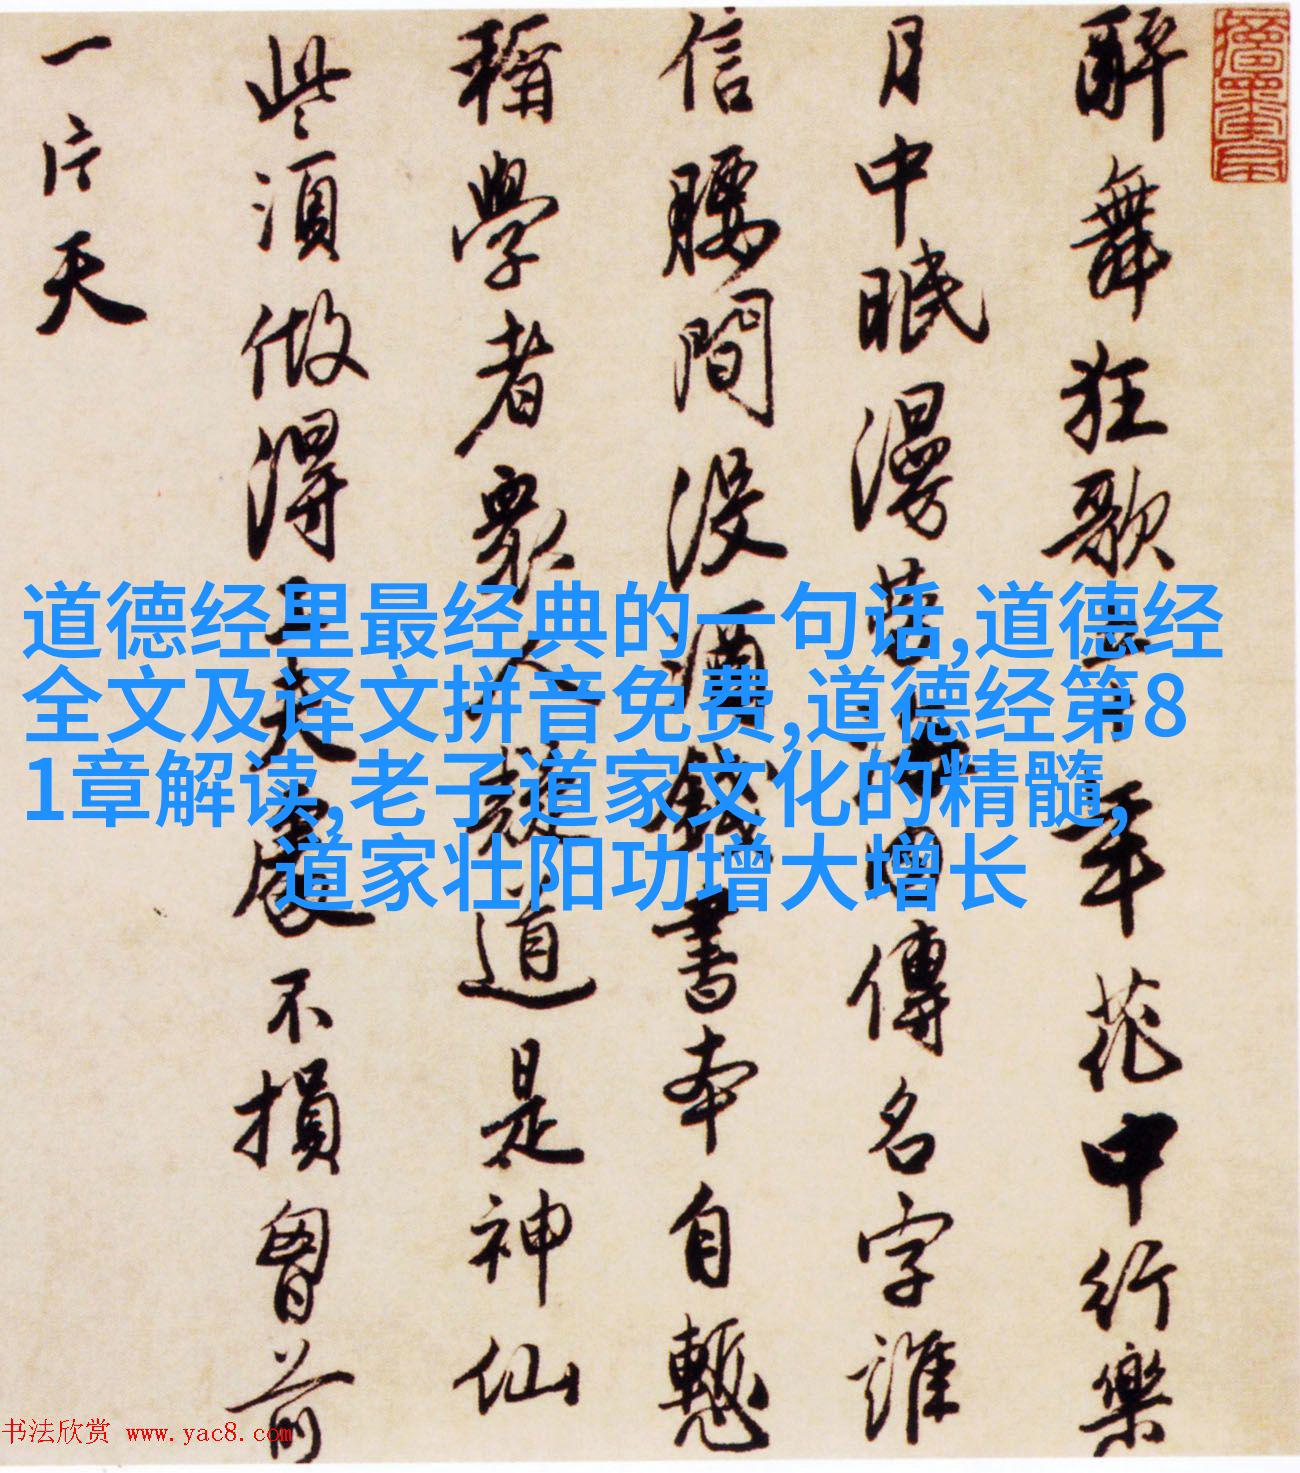 醉舞狂歌五十年花中行樂
月中眠漫勞海內傳名字誰
信腰間沒酒錢書本自慙
稱學者眾人疑道是神仙
些須做得工夫處不損胷前
一片天
道德经里最经典的一句话,道德经
全文及译文拼音免费,道德经第8
1章解读,老子道家文化的精髓,
道家壮阳功增大增长
书法欣赏 www.yac8.com